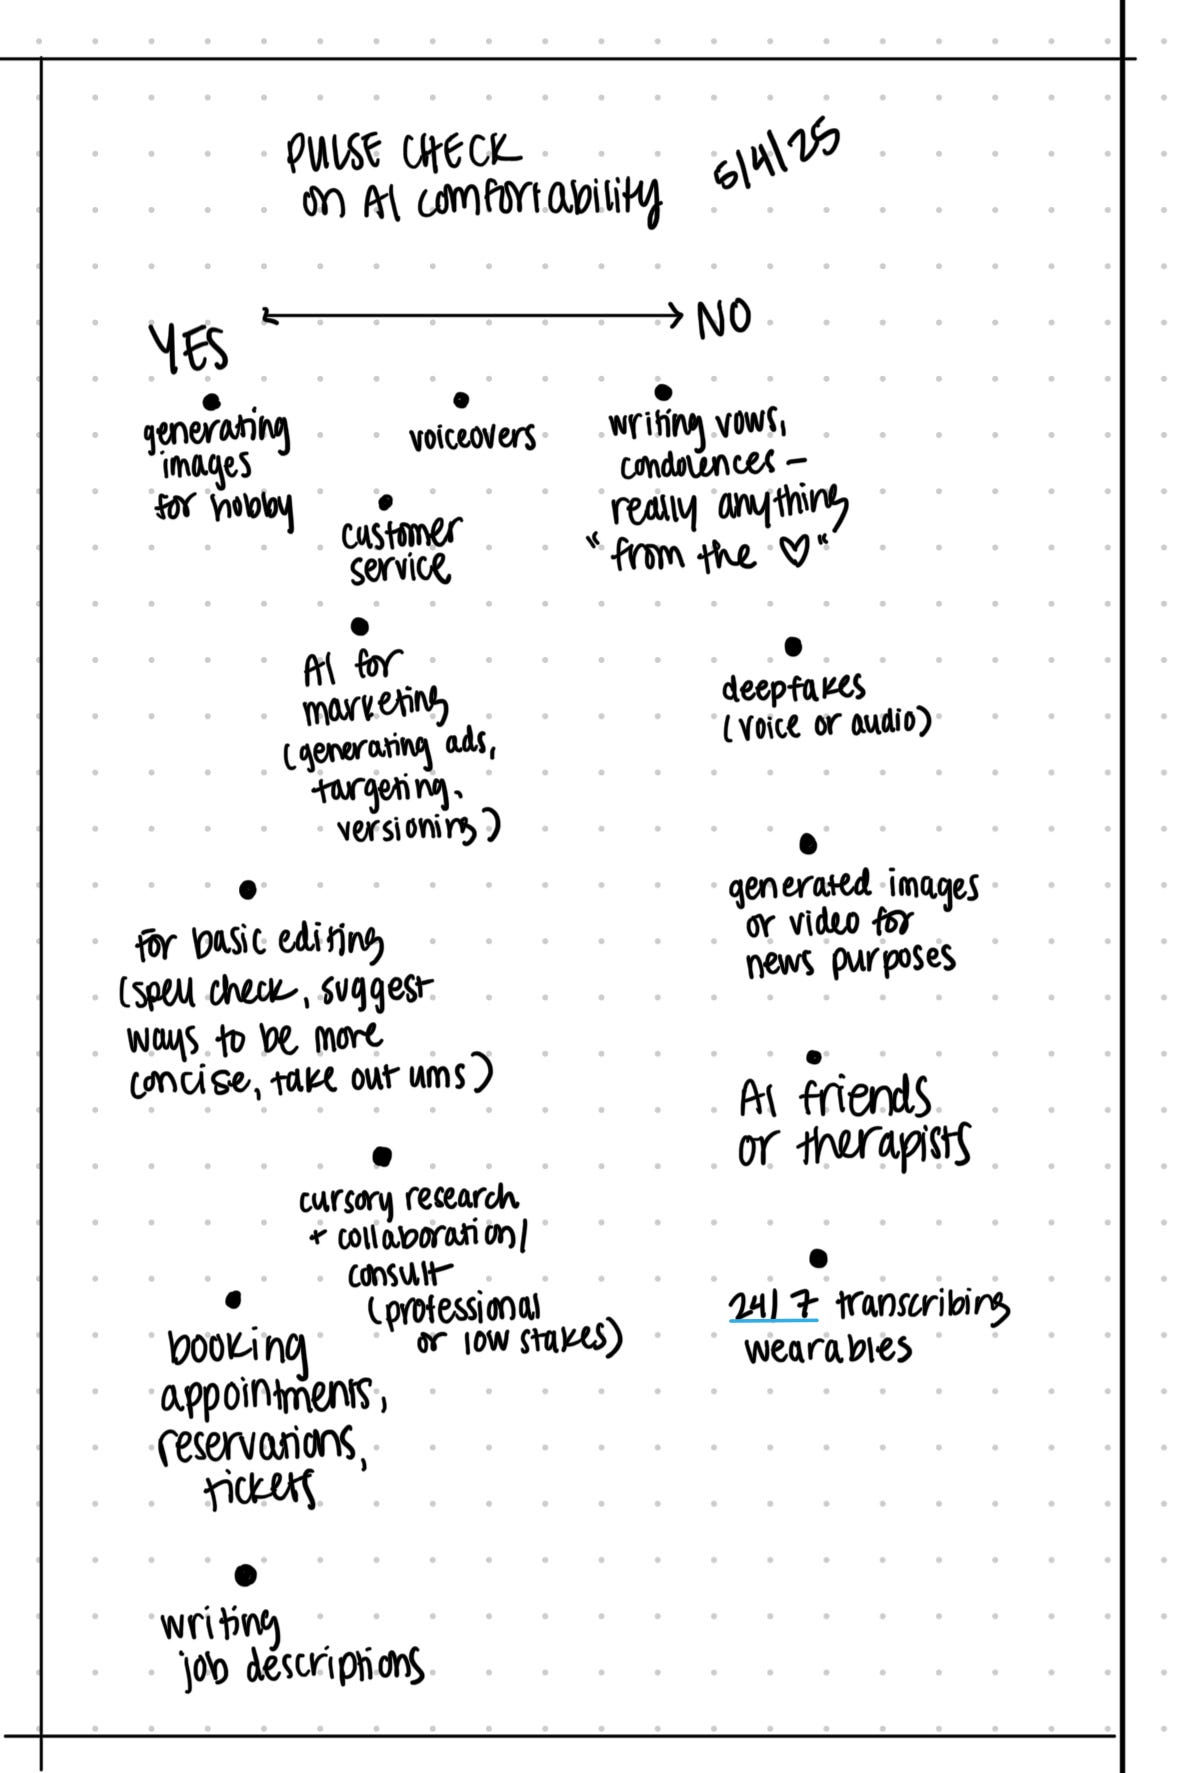 PULSE CHECK
on AI comfortability
5/4/25
YES
NO
generating
images
for hobby
voiceovers
writing vows,
condolences –
really anything
"from the ♡"
customer
service
AI for
marketing
(generating ads,
targeting,
versioning)
deepfakes
(voice or audio)
generated images
or video for
news purposes
for basic editing
(spell check, suggest
ways to be more
concise, take out ums)
AI friends
or therapists
cursory research
+ collaboration/
consult
(professional
or low stakes)
24/7 transcribing
wearables
booking
appointments,
reservations,
tickets
writing
job descriptions